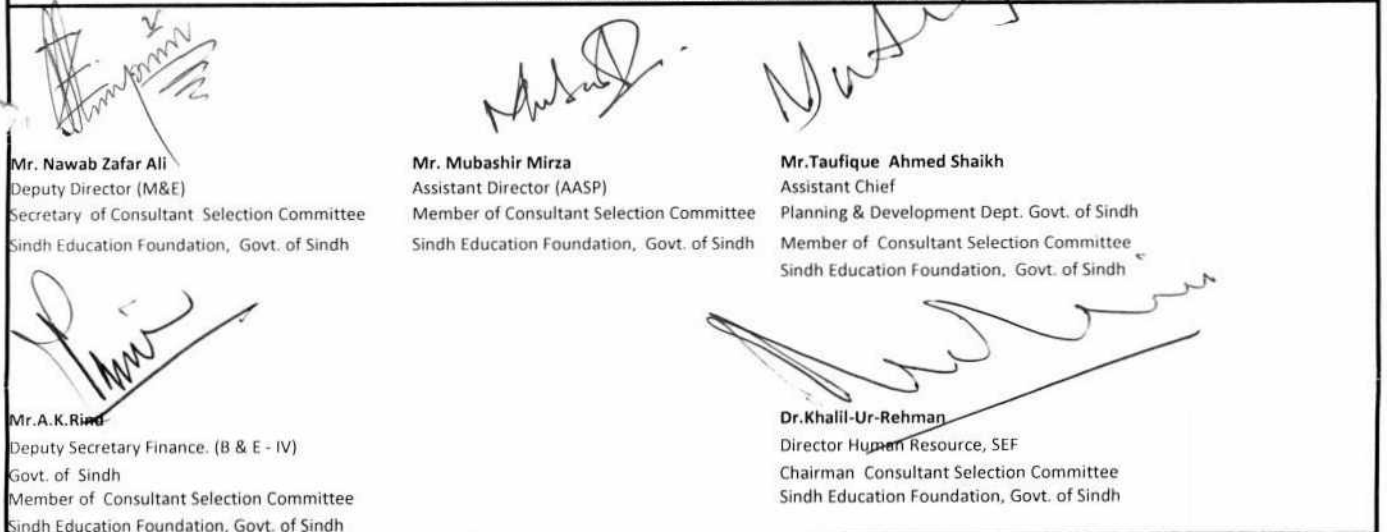 Mr. Nawab Zafar Ali
Deputy Director (M&E)
Secretary of Consultant Selection Committee
Sindh Education Foundation, Govt. of Sindh
Mr. Mubashir Mirza
Assistant Director (AASP)
Member of Consultant Selection Committee
Sindh Education Foundation, Govt. of Sindh
Mr.Taufique Ahmed Shaikh
Assistant Chief
Planning & Development Dept. Govt. of Sindh
Member of Consultant Selection Committee
Sindh Education Foundation, Govt. of Sindh
Mr.A.K.Rind
Deputy Secretary Finance. (B & E - IV)
Govt. of Sindh
Member of Consultant Selection Committee
Sindh Education Foundation, Govt. of Sindh
Dr.Khalil-Ur-Rehman
Director Human Resource, SEF
Chairman Consultant Selection Committee
Sindh Education Foundation, Govt. of Sindh